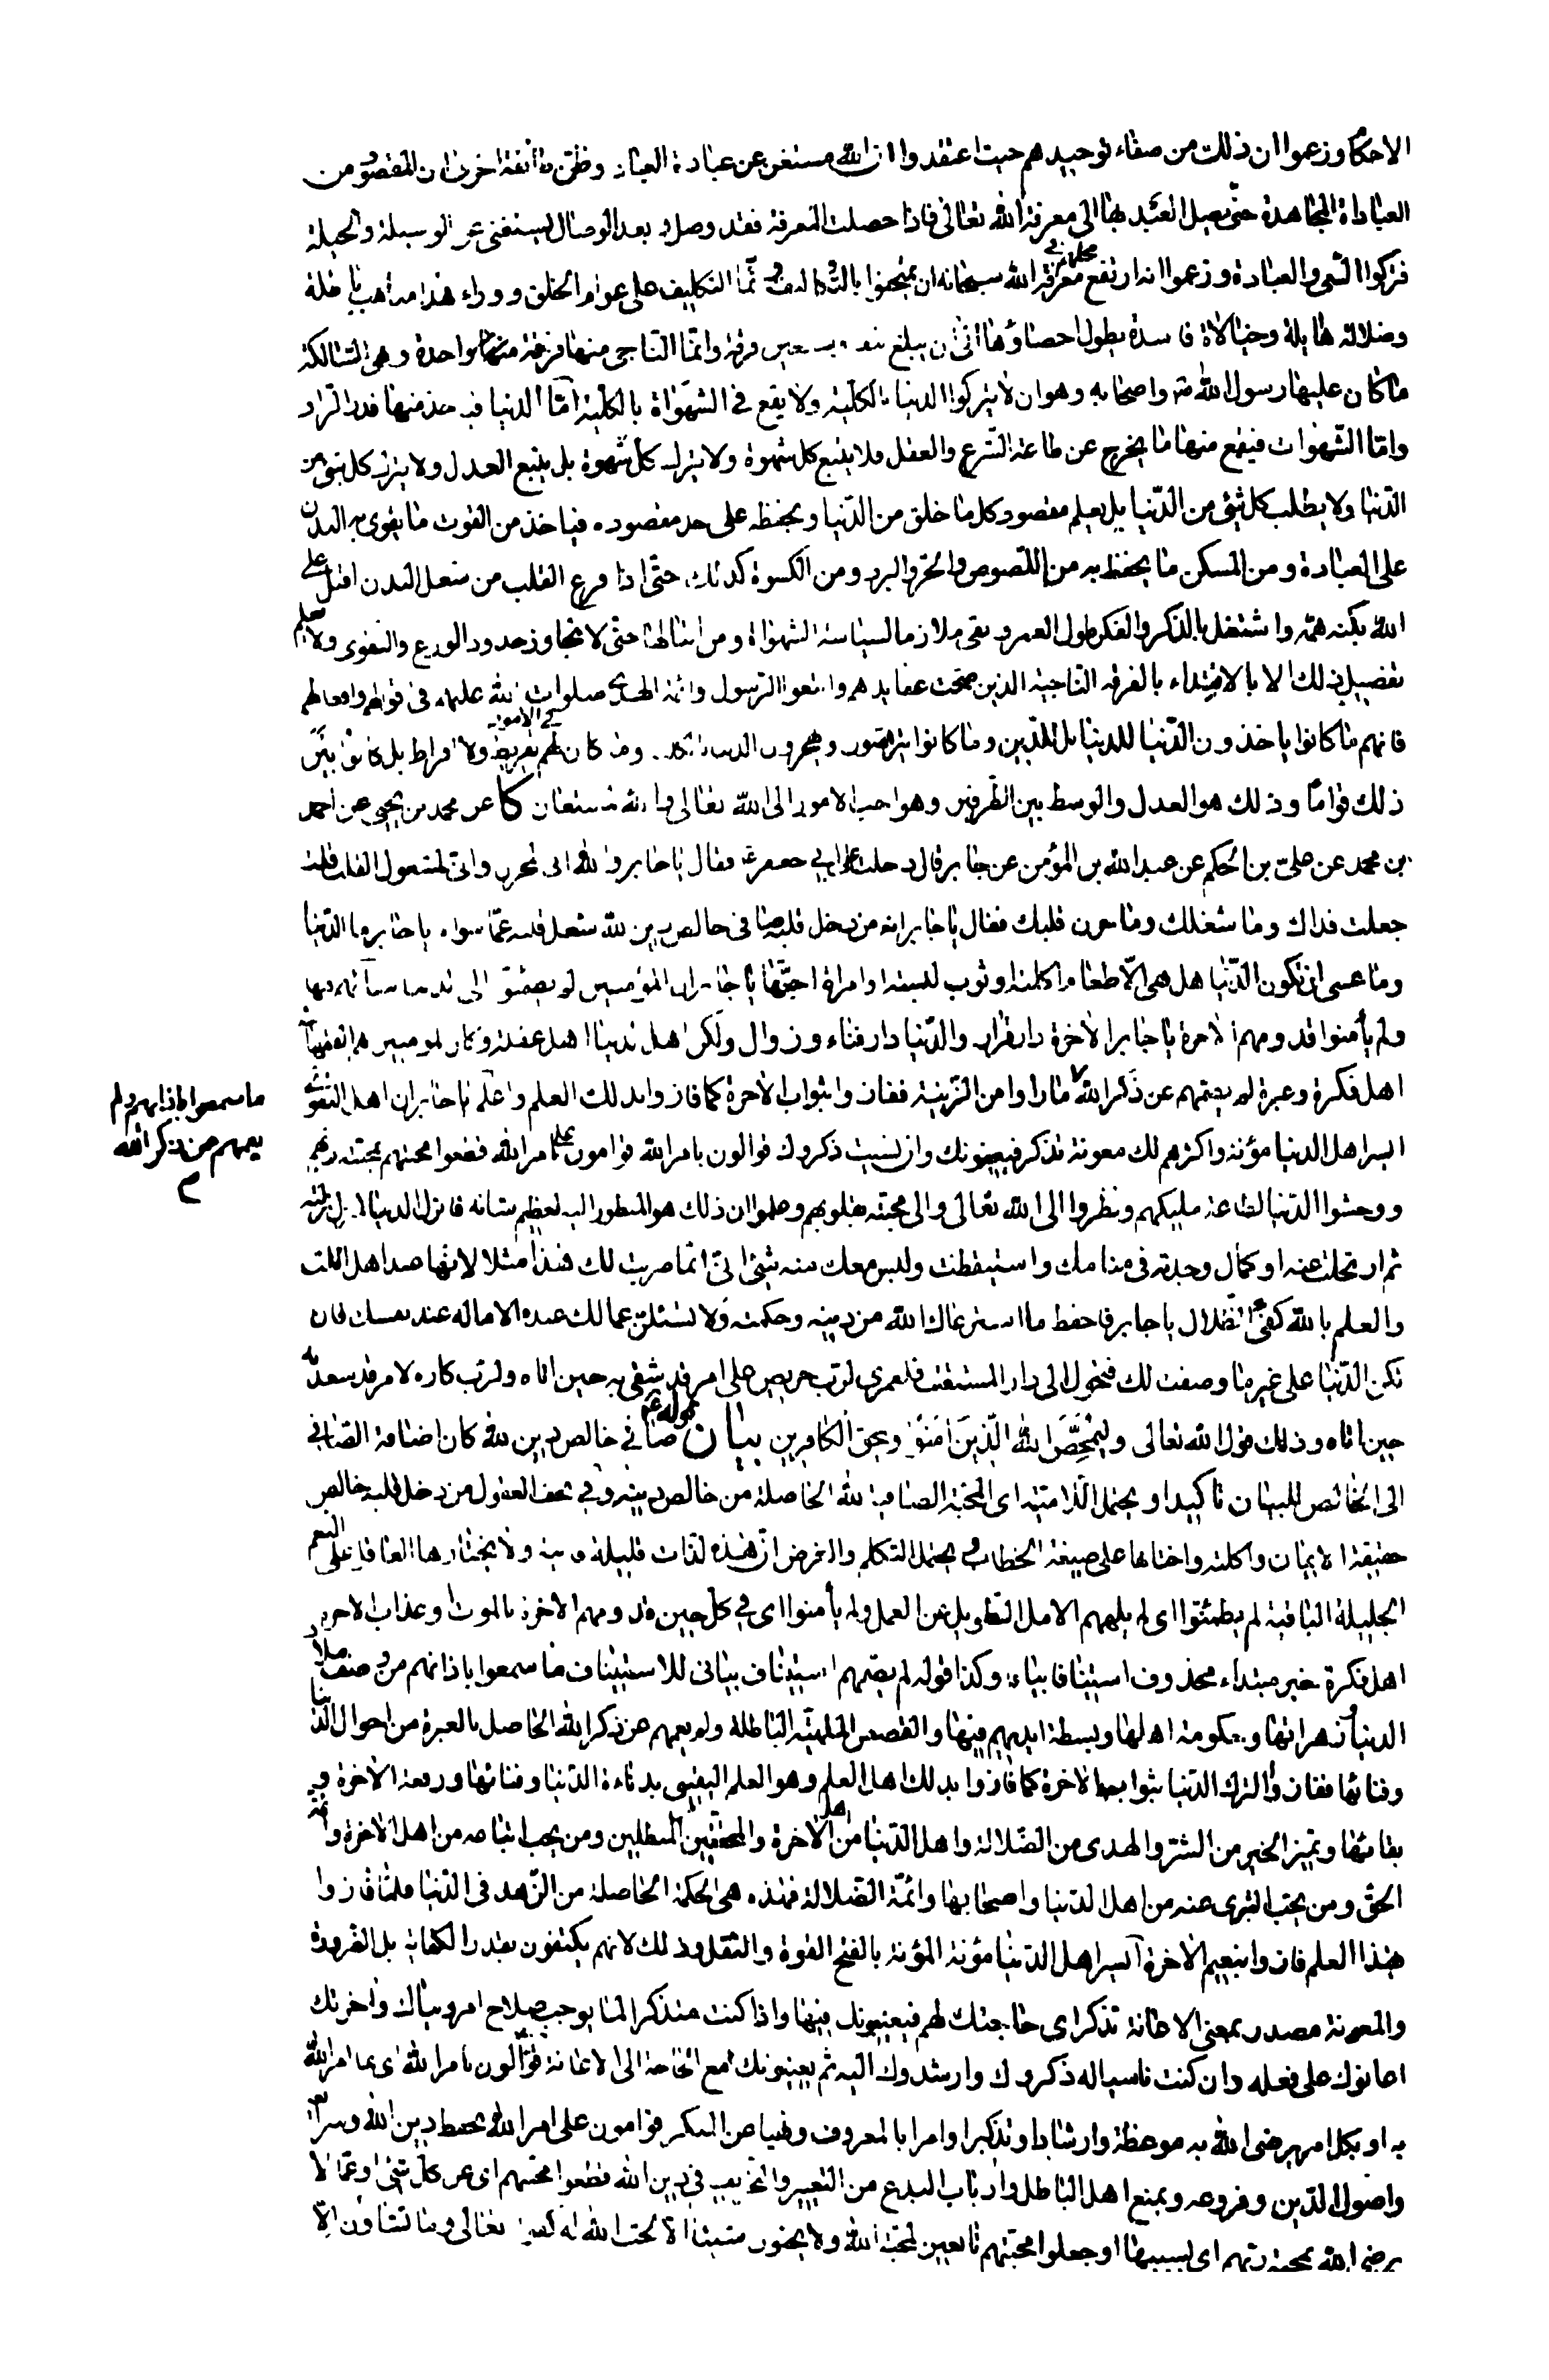 الاحكام وزعموا ان ذلك من صفاء توحيدهم حيث اعتقدوا ان الله مستغن عن عبادة العباد وظن طائفة اخرى ان المقصود من
العبادة المجاهدة حتى يصل العبد بها الى معرفة الله تعالى فاذا حصلت المعرفة فقد وصل وبعد الوصال يستغنى عن الوسيلة والحيلة
فتركوا السعى والعبادة وزعموا انه ارتفع محلهم فى معرفة الله سبحانه ان يمتحنوا بالتكاليف وانما التكليف على عوام الخلق ووراء هذا مذاهب باطلة
وضلالة هايلة وخيالاة فاسدة يطول احصاؤها الى ان يبلغ نيفا وسبعين فرقة وانما الناجى منها فرقة واحدة وهى السالكة
ما كان عليها رسول الله ص واصحابه وهو ان لا يتركوا الدنيا بالكلية ولا يقع فى الشهواة بالكلية اما الدنيا فيؤخذ منها قدر الزاد
واما الشهوات فيقمع منها ما يخرج عن طاعة الشرع والعقل فلا يتبع كل شهوة ولا يترك كل شهوة بل يتبع العدل ولا يترك كل شئ من
الدنيا ولا يطلب كل شئ من الدنيا بل يعلم مقصود كل ما خلق من الدنيا ويحفظه على حد مقصوده فياخذ من القوت ما يقوى به البدن
على العبادة ومن المسكن ما يحفظ به من اللصوص والحر والبرد ومن الكسوة كذلك حتى اذا فرغ القلب من شغل البدن اقبل على
الله بكنه همته واشتغل بالذكر والفكر طول العمر وبقى ملازما لسياسة الشهواة ومراقبا لها حتى لا تجاوز حدود الورع والتقوى ولا يعلم
تفصيل ذلك الا بالاقتداء بالفرقة الناجية الذين صحت عقايدهم واتبعوا الرسول وائمة الهدى صلوات الله عليهم فى اقوالهم وافعالهم
فانهم ما كانوا ياخذون الدنيا للدنيا بل للدين وما كانوا يترهبون ويهجرون الدنيا بالكلية وما كان لهم فى الامور تفريط ولا افراط بل كانوا بين
ذلك قواما وذلك هو العدل والوسط بين الطرفين وهو احب الامور الى الله تعالى والله المستعان كا عن محمد بن يحيى عن احمد
بن محمد عن على بن الحكم عن عبد الله بن المؤمن عن جابر قال دخلت على ابى جعفر ع فقال يا جابر والله انى لمحزون وانى لمشغول القلب قلت
جعلت فداك وما شغلك وما حزن قلبك فقال يا جابر انه من دخل قلبه صافى خالص دين الله شغل قلبه عما سواه يا جابر ما الدنيا
وما عسى ان تكون الدنيا هل هى الا طعام اكلته او ثوب لبسته او امراة اصبتها يا جابر ان المؤمنين لم يطمئنوا الى الدنيا ببقائهم فيها
ولم يأمنوا قدومهم الاخرة يا جابر الاخرة دار قرار والدنيا دار فناء وزوال ولكن اهل الدنيا اهل غفلة وكان المؤمنين هم الفقهاء
اهل فكرة وعبرة لم يصمهم عن ذكر الله ما راوا من الزينة ففازوا بثواب الاخرة كما فازوا بذلك العلم واعلم يا جابر ان اهل التقوى
ايسر اهل الدنيا مؤنة واكثرهم لك معونة تذكر فيعينونك وان نسيت ذكروك قوالون بامر الله قوامون على امر الله قطعوا محبتهم بمحبة ربهم
ووحشوا الدنيا لطاعة مليكهم ونظروا الى الله تعالى والى محبته بقلوبهم وعلموا ان ذلك هو المنظور اليه لعظيم شانه فانزل الدنيا كمنزل نزلته
ثم ارتحلت عنه او كمال وجدته فى منامك واستيقظت وليس معك منه شئ انى انما ضربت لك هذا مثلا لانها عند اهل اللب
والعلم بالله كفئ الظلال يا جابر فاحفظ ما استرعاك الله من دينه وحكمته ولا تسئلن عما لك عنده الا ما له عند نفسك فان
تكن الدنيا على غير ما وصفت لك فتحول الى دار المستعتب فلعمرى لرب حريص على امر قد شقى به حين اتاه ولرب كاره لامر قد سعد به
حين اتاه وذلك قول الله تعالى وليمحص الله الذين امنوا ويمحق الكافرين بيان قوله ع صافى خالص دين الله كان اضافة الصافى
الى الخالص للبيان تاكيدا ويحتمل اللامية اى المحبة الصافية لله الحاصلة من خالص دينه وفى تحف العقول من دخل قلبه خالص
حقيقة الايمان واكلته واختاها على صيغة الخطاب ويحتمل التكلم والغرض ان هذه لذات قليلة فانية ولا يختارها العاقل على النعم
الجليلة الباقية لم يطمئنوا اى لم يلههم الامل الطويل عن العمل ولم يأمنوا اى فى كل حين قدومهم الاخرة بالموت وعذاب الاخرة
اهل فكرة خبر مبتداء محذوف استينافا بيانيا وكذا قوله لم يصمهم استيناف بيانى للاستيناف ما سمعوا باذانهم من وصف ملاذ
الدنيا وزهراتها وحكومة اهلها وبسطة ايديهم فيها والقصص الملهية الباطلة ولم يعمهم عن ذكر الله الحاصل بالعبرة من احوال الدنيا
وفنائها ففازوا لترك الدنيا بثواب الاخرة كما فازوا بذلك اهل العلم وهو العلم اليقينى بدناءة الدنيا وفنائها ورفعة الاخرة و
بقائها وتميز الخير من الشر والهدى من الضلالة واهل الدنيا من اهل الاخرة والمحقين من المبطلين ومن يجب اتباعه من اهل الاخرة وائمة
الحق ومن يجب التبرى عنه من اهل الدنيا واصحابها وائمة الضلالة فهذه هى الحكمة الحاصلة من الزهد فى الدنيا فلما فازوا
بهذا العلم فازوا بنعيم الاخرة ايسر اهل الدنيا مؤنة المؤنة بالفتح القوة والثقل وذلك لانهم يكتفون بقدر الكفاية بل الضرورة
والمعونة مصدر بمعنى الاعانة تذكر اى حاجتك لهم فيعينونك فيها واذا كنت متذكرا لما يوجب صلاح امر دنياك واخرتك
اعانوك على فعله وان كنت ناسيا له ذكروك وارشدوك اليه ثم يعينونك مع الحاجة الى الاعانة قوالون بامر الله اى بما امر الله
به او بكل امر يرضى الله به موعظة وارشادا وتذكيرا وامرا بالمعروف ونهيا عن المنكر قوامون على امر الله بحفظ دين الله وشرايعه
واصول الدين وفروعه وبمنع اهل الباطل وارباب البدع من التغيير والتحريف فى دين الله قطعوا محبتهم اى عن كل شئ او عما لا
يرضى الله بمحبة ربهم اى بسببها او جعلوا محبتهم تابعين لمحبة الله ولا يحبون شيئا الا لحب الله له كقوله تعالى وما تشاؤن الا
ما سمعوا باذانهم ولم
يعمهم عن ذكر الله
م